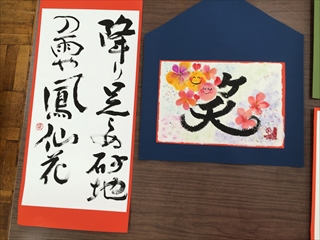 降り足らぬ砂地
の雨や鳳仙花
笑